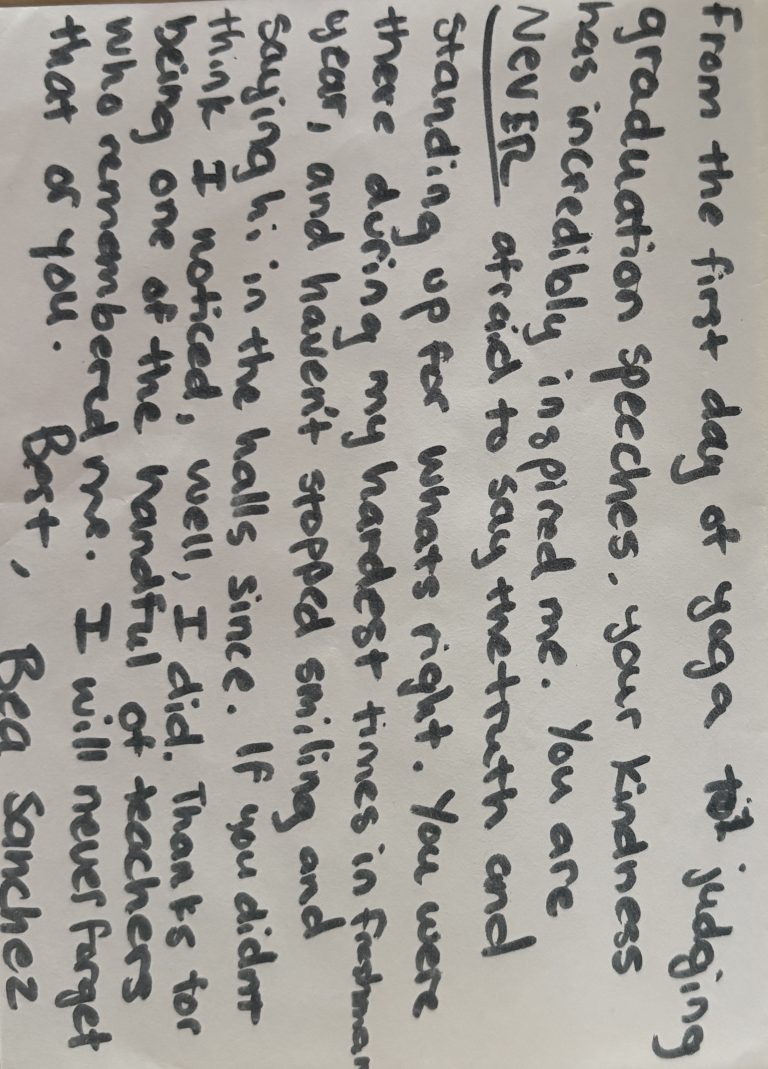 From the first day of yoga to judging
graduation speeches. your kindness
has incredibly inspired me. You are
NEVER afraid to say the truth and
standing up for whats right. You were
there during my hardest times in freshman
year, and haven't stopped smiling and
saying hi in the halls since. If you didnt
think I noticed, well, I did. Thanks for
being one of the handful of teachers
who remembered me. I will never forget
that of you.
Best, Bea Sanchez